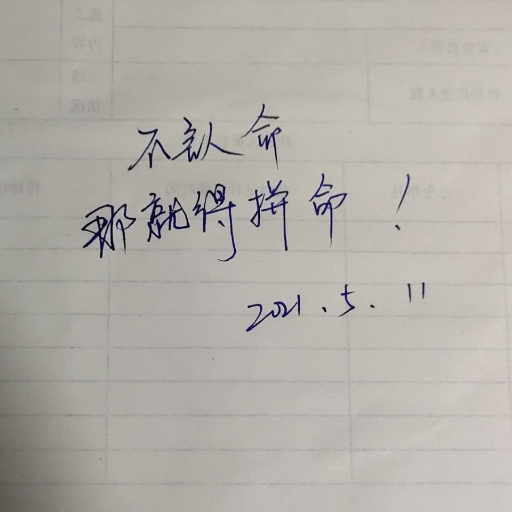 不认命
那就得拼命！
2021.5.11